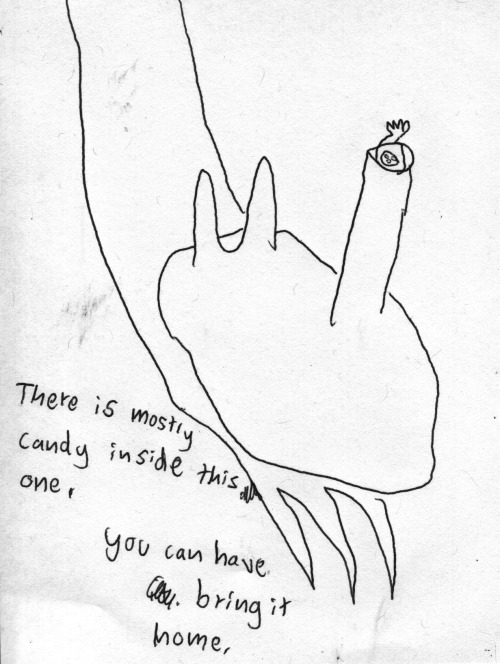 There is mostly
candy inside this
one.
you can have.
. bring it
home.